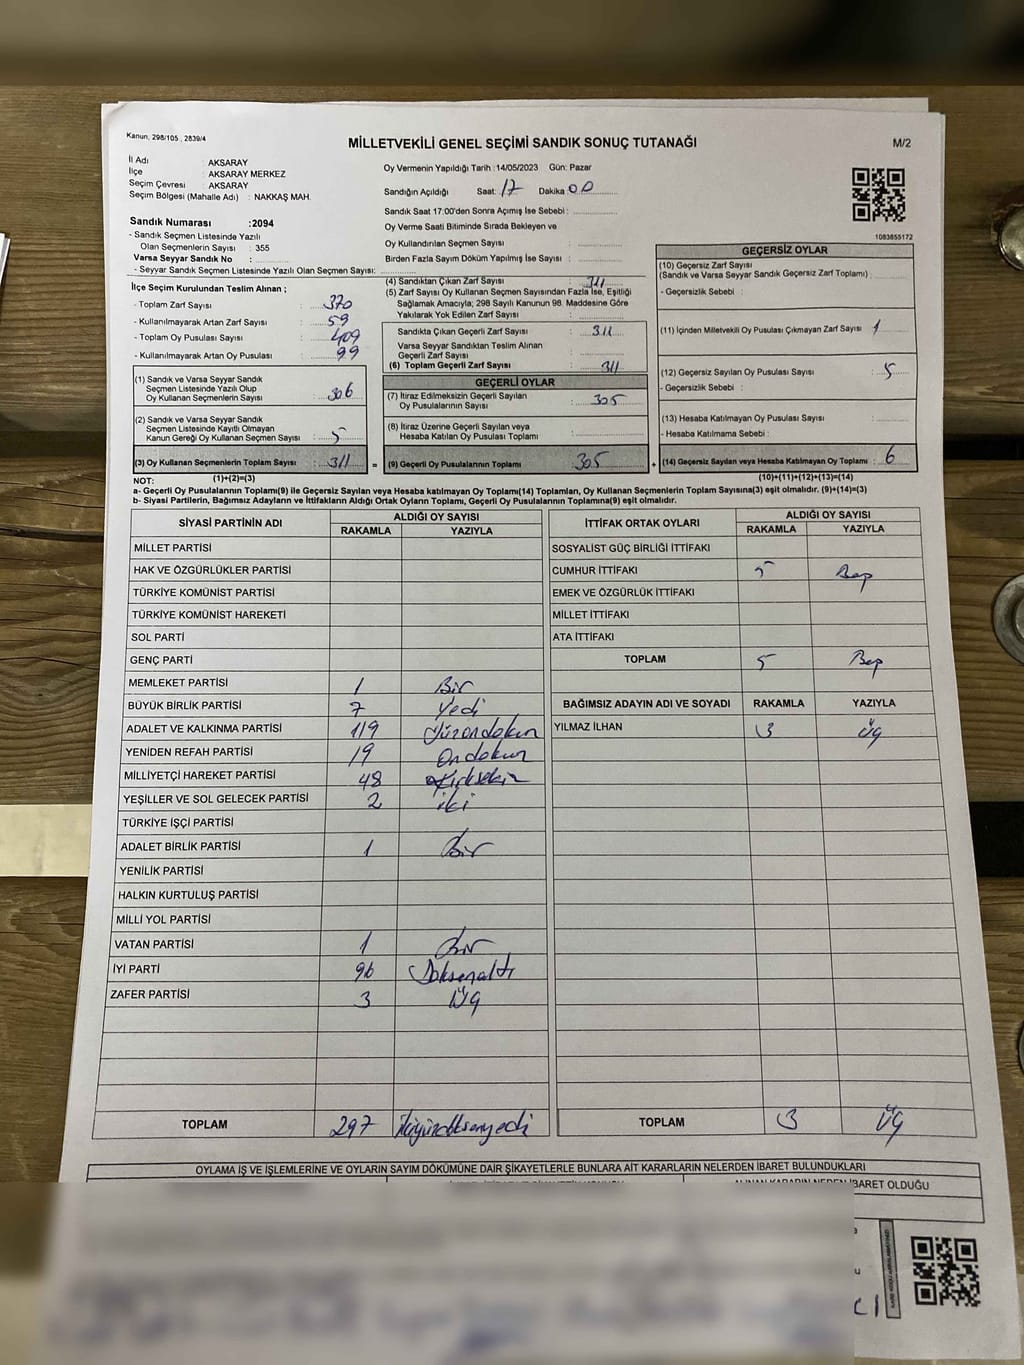 Kanun, 298/105, 2839/4
MİLLETVEKİLİ GENEL SEÇİMİ SANDIK SONUÇ TUTANAĞI
M/2
İl Adı : AKSARAY
İlçe : AKSARAY MERKEZ
Seçim Çevresi : AKSARAY
Seçim Bölgesi (Mahalle Adı) : NAKKAŞ MAH.
Sandık Numarası :2094
- Sandık Seçmen Listesinde Yazılı
Olan Seçmenlerin Sayısı : 355
Varsa Seyyar Sandık No :
- Seyyar Sandık Seçmen Listesinde Yazılı Olan Seçmen Sayısı:
İlçe Seçim Kurulundan Teslim Alınan ;
- Toplam Zarf Sayısı : 370
- Kullanılmayarak Artan Zarf Sayısı : 59
- Toplam Oy Pusulası : 409
- Kullanılmayarak Artan Oy Pusulası : 99
(1) Sandık ve Varsa Seyyar Sandık
Seçmen Listesinde Yazılı Olup
Oy Kullanan Seçmenlerin Sayısı : 306
(2) Sandık ve Varsa Seyyar Sandık
Seçmen Listesinde Kayıtlı Olmayan
Kanun Gereği Oy Kullanan Seçmen Sayısı : 5
(3) Oy Kullanan Seçmenlerin Toplam Sayısı : 311
Oy Vermenin Yapıldığı Tarih :14/05/2023 Gün: Pazar
Sandığın Açıldığı Saat: 17 Dakika 00
Sandık Saat 17:00'den Sonra Açımış İse Sebebi :
Oy Verme Saati Bitiminde Sırada Bekleyen ve
Oy Kullandırılan Seçmen Sayısı :
Birden Fazla Sayım Döküm Yapılmış İse Sayısı :
(4) Sandıktan Çıkan Zarf Sayısı : 311
(5) Zarf Sayısı Oy Kullanan Seçmen Sayısından Fazla İse, Eşitliği
Sağlamak Amacıyla; 298 Sayılı Kanunun 98. Maddesine Göre
Yakılarak Yok Edilen Zarf Sayısı :
Sandıkta Çıkan Geçerli Zarf Sayısı : 311
Varsa Seyyar Sandıktan Teslim Alınan
Geçerli Zarf Sayısı :
(6) Toplam Geçerli Zarf Sayısı : 311
GEÇERLİ OYLAR
(7) İtiraz Edilmeksizin Geçerli Sayılan
Oy Pusulalarının Sayısı : 305
(8) İtiraz Üzerine Geçerli Sayılan veya
Hesaba Katılan Oy Pusulası Toplamı :
= (9) Geçerli Oy Pusulalarının Toplamı : 305
1083655172
GEÇERSİZ OYLAR
(10) Geçersiz Zarf Sayısı
(Sandık ve Varsa Seyyar Sandık Geçersiz Zarf Toplamı) :
- Geçersizlik Sebebi :
(11) İçinden Milletvekili Oy Pusulası Çıkmayan Zarf Sayısı : 1
(12) Geçersiz Sayılan Oy Pusulası Sayısı : 5
- Geçersizlik Sebebi :
(13) Hesaba Katılmayan Oy Pusulası Sayısı :
- Hesaba Katılmama Sebebi :
+ (14) Geçersiz Sayılan veya Hesaba Katılmayan Oy Toplamı : 6
NOT: (1)+(2)=(3) (10)+(11)+(12)+(13)=(14)
a- Geçerli Oy Pusulalarının Toplamı(9) ile Geçersiz Sayılan veya Hesaba katılmayan Oy Toplamı(14) Toplamları, Oy Kullanan Seçmenlerin Toplam Sayısına(3) eşit olmalıdır. (9)+(14)=(3)
b- Siyasi Partilerin, Bağımsız Adayların ve İttifakların Aldığı Ortak Oyların Toplamı, Geçerli Oy Pusulalarının Toplamına(9) eşit olmalıdır.
SİYASİ PARTİNİN ADI ALDIĞI OY SAYISI
RAKAMLA YAZIYLA
MİLLET PARTİSİ
HAK VE ÖZGÜRLÜKLER PARTİSİ
TÜRKİYE KOMÜNİST PARTİSİ
TÜRKİYE KOMÜNİST HAREKETİ
SOL PARTİ
GENÇ PARTİ
MEMLEKET PARTİSİ 1 Bir
BÜYÜK BİRLİK PARTİSİ 7 Yedi
ADALET VE KALKINMA PARTİSİ 119 Yüzondokuz
YENİDEN REFAH PARTİSİ 19 Ondokuz
MİLLİYETÇİ HAREKET PARTİSİ 48 Kırksekiz
YEŞİLLER VE SOL GELECEK PARTİSİ 2 iki
TÜRKİYE İŞÇİ PARTİSİ
ADALET BİRLİK PARTİSİ 1 Bir
YENİLİK PARTİSİ
HALKIN KURTULUŞ PARTİSİ
MİLLİ YOL PARTİSİ
VATAN PARTİSİ 1 Bir
İYİ PARTİ 96 Doksanaltı
ZAFER PARTİSİ 3 Üç
TOPLAM 297 ikiyüzdoksanyedi
İTTİFAK ORTAK OYLARI ALDIĞI OY SAYISI
RAKAMLA YAZIYLA
SOSYALİST GÜÇ BİRLİĞİ İTTİFAKI
CUMHUR İTTİFAKI 5 Beş
EMEK VE ÖZGÜRLÜK İTTİFAKI
MİLLET İTTİFAKI
ATA İTTİFAKI
TOPLAM 5 Beş
BAĞIMSIZ ADAYIN ADI VE SOYADI RAKAMLA YAZIYLA
YILMAZ İLHAN 3 Üç
TOPLAM 3 Üç
OYLAMA İŞ VE İŞLEMLERİNE VE OYLARIN SAYIM DÖKÜMÜNE DAİR ŞİKAYETLERLE BUNLARA AİT KARARLARIN NELERDEN İBARET BULUNDUKLARI
İBARET OLDUĞU